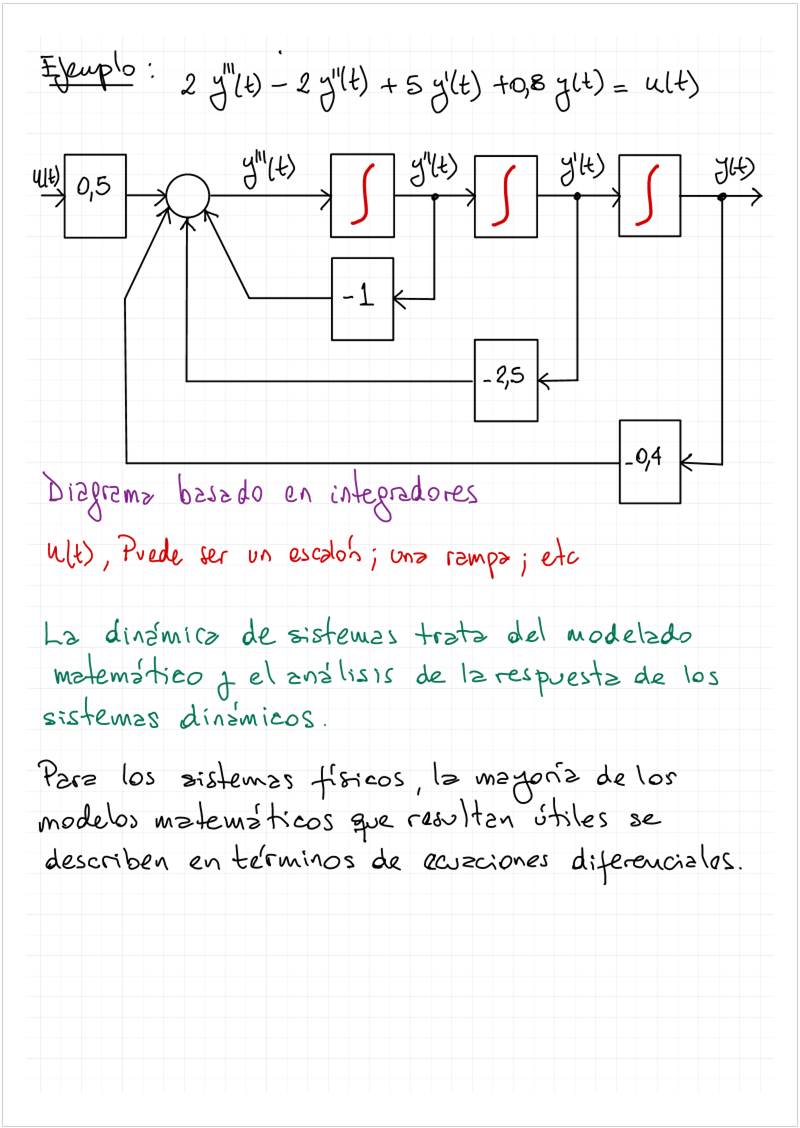 Ejemplo: 2 y'''(t) - 2 y''(t) + 5 y'(t) + 0,8 y(t) = u(t)
u(t) 0,5 y'''(t) ∫ y''(t) ∫ y'(t) ∫ y(t)
-1
-2,5
-0,4
Diagrama basado en integradores
u(t), Puede ser un escalón; una rampa; etc
La dinámica de sistemas trata del modelado
matemático y el análisis de la respuesta de los
sistemas dinámicos.
Para los sistemas físicos, la mayoría de los
modelos matemáticos que resultan útiles se
describen en términos de ecuaciones diferenciales.